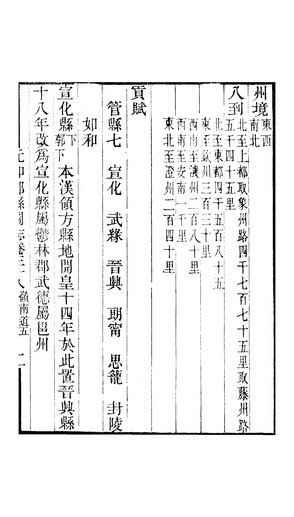 州境東西南北
八到北至上都取象州路四千七百七十五里取藤州路
五千四十五里
北至東都四千五百八十五
東至欽州三百三十里
西南至瀼州二百八十里
西南至安南一千里
東北至澄州二百四十里
貢賦
管縣七 宣化 武緣 晉興 朗甯 思籠 封陵
如和
宣化縣郭下本漢領方縣地開皇十四年於此置晉興縣
十八年改爲宣化縣屬鬱林郡武德屬邕州
元和郡縣圖志卷三八嶺南道五 二